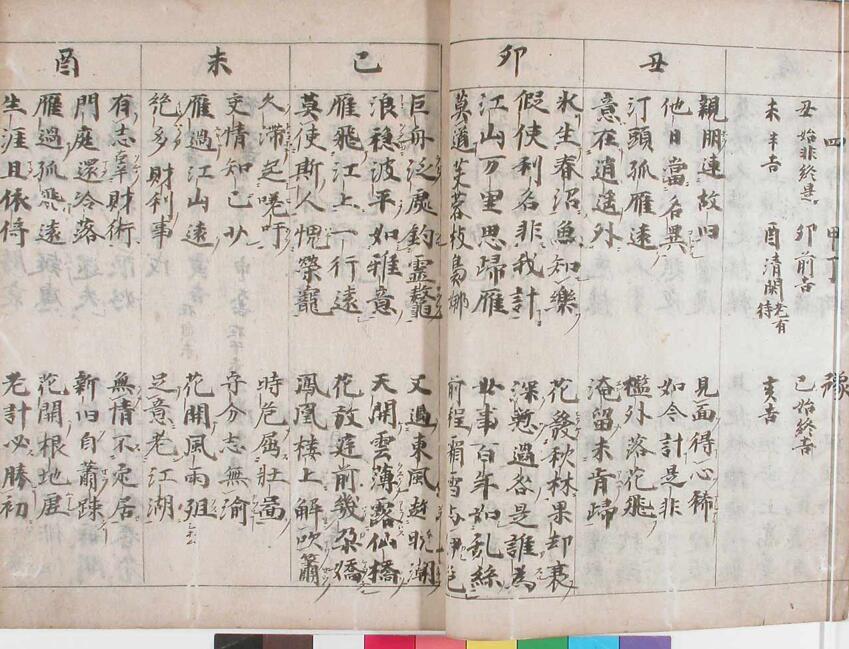 四 甲丁 豫
丑 始非終是 卯 前吉 巳 始終吉
未 半吉 酉 清閑 老有待 亥吉
丑
親朋連故旧 見面得心稀
他日當名異 如今計是非
汀頭孤雁遠 檻外落花飛
意在逍遥外 淹留未肯歸
卯
氷生春沼魚知樂 花發秋林果却衰
假使利名非我計 深愆過咎是誰為
江山万里思歸雁 世事百年如乱絲
莫道芙蓉枝 前程霜雪
巳
巨舟泛處釣靈鼇 又過東風趁晩潮
浪穏波平如雅意 天開雲薄露仙橋
雁飛江上一行遠 花放庭前幾朶嬌
莫使斯人惧榮寵 鳳凰樓上解吹簫
未
久滞起嗟吁 時危属壮啚
交情知已少 守分志無渝
雁過江山遠 花開風雨俎
絶多財利事 足意老江湖
酉
有志辜財術 無情不定居
門庭還冷落 新旧自蕭踈
雁過孤飛遠 花開根地
生涯且依得 老計必勝初